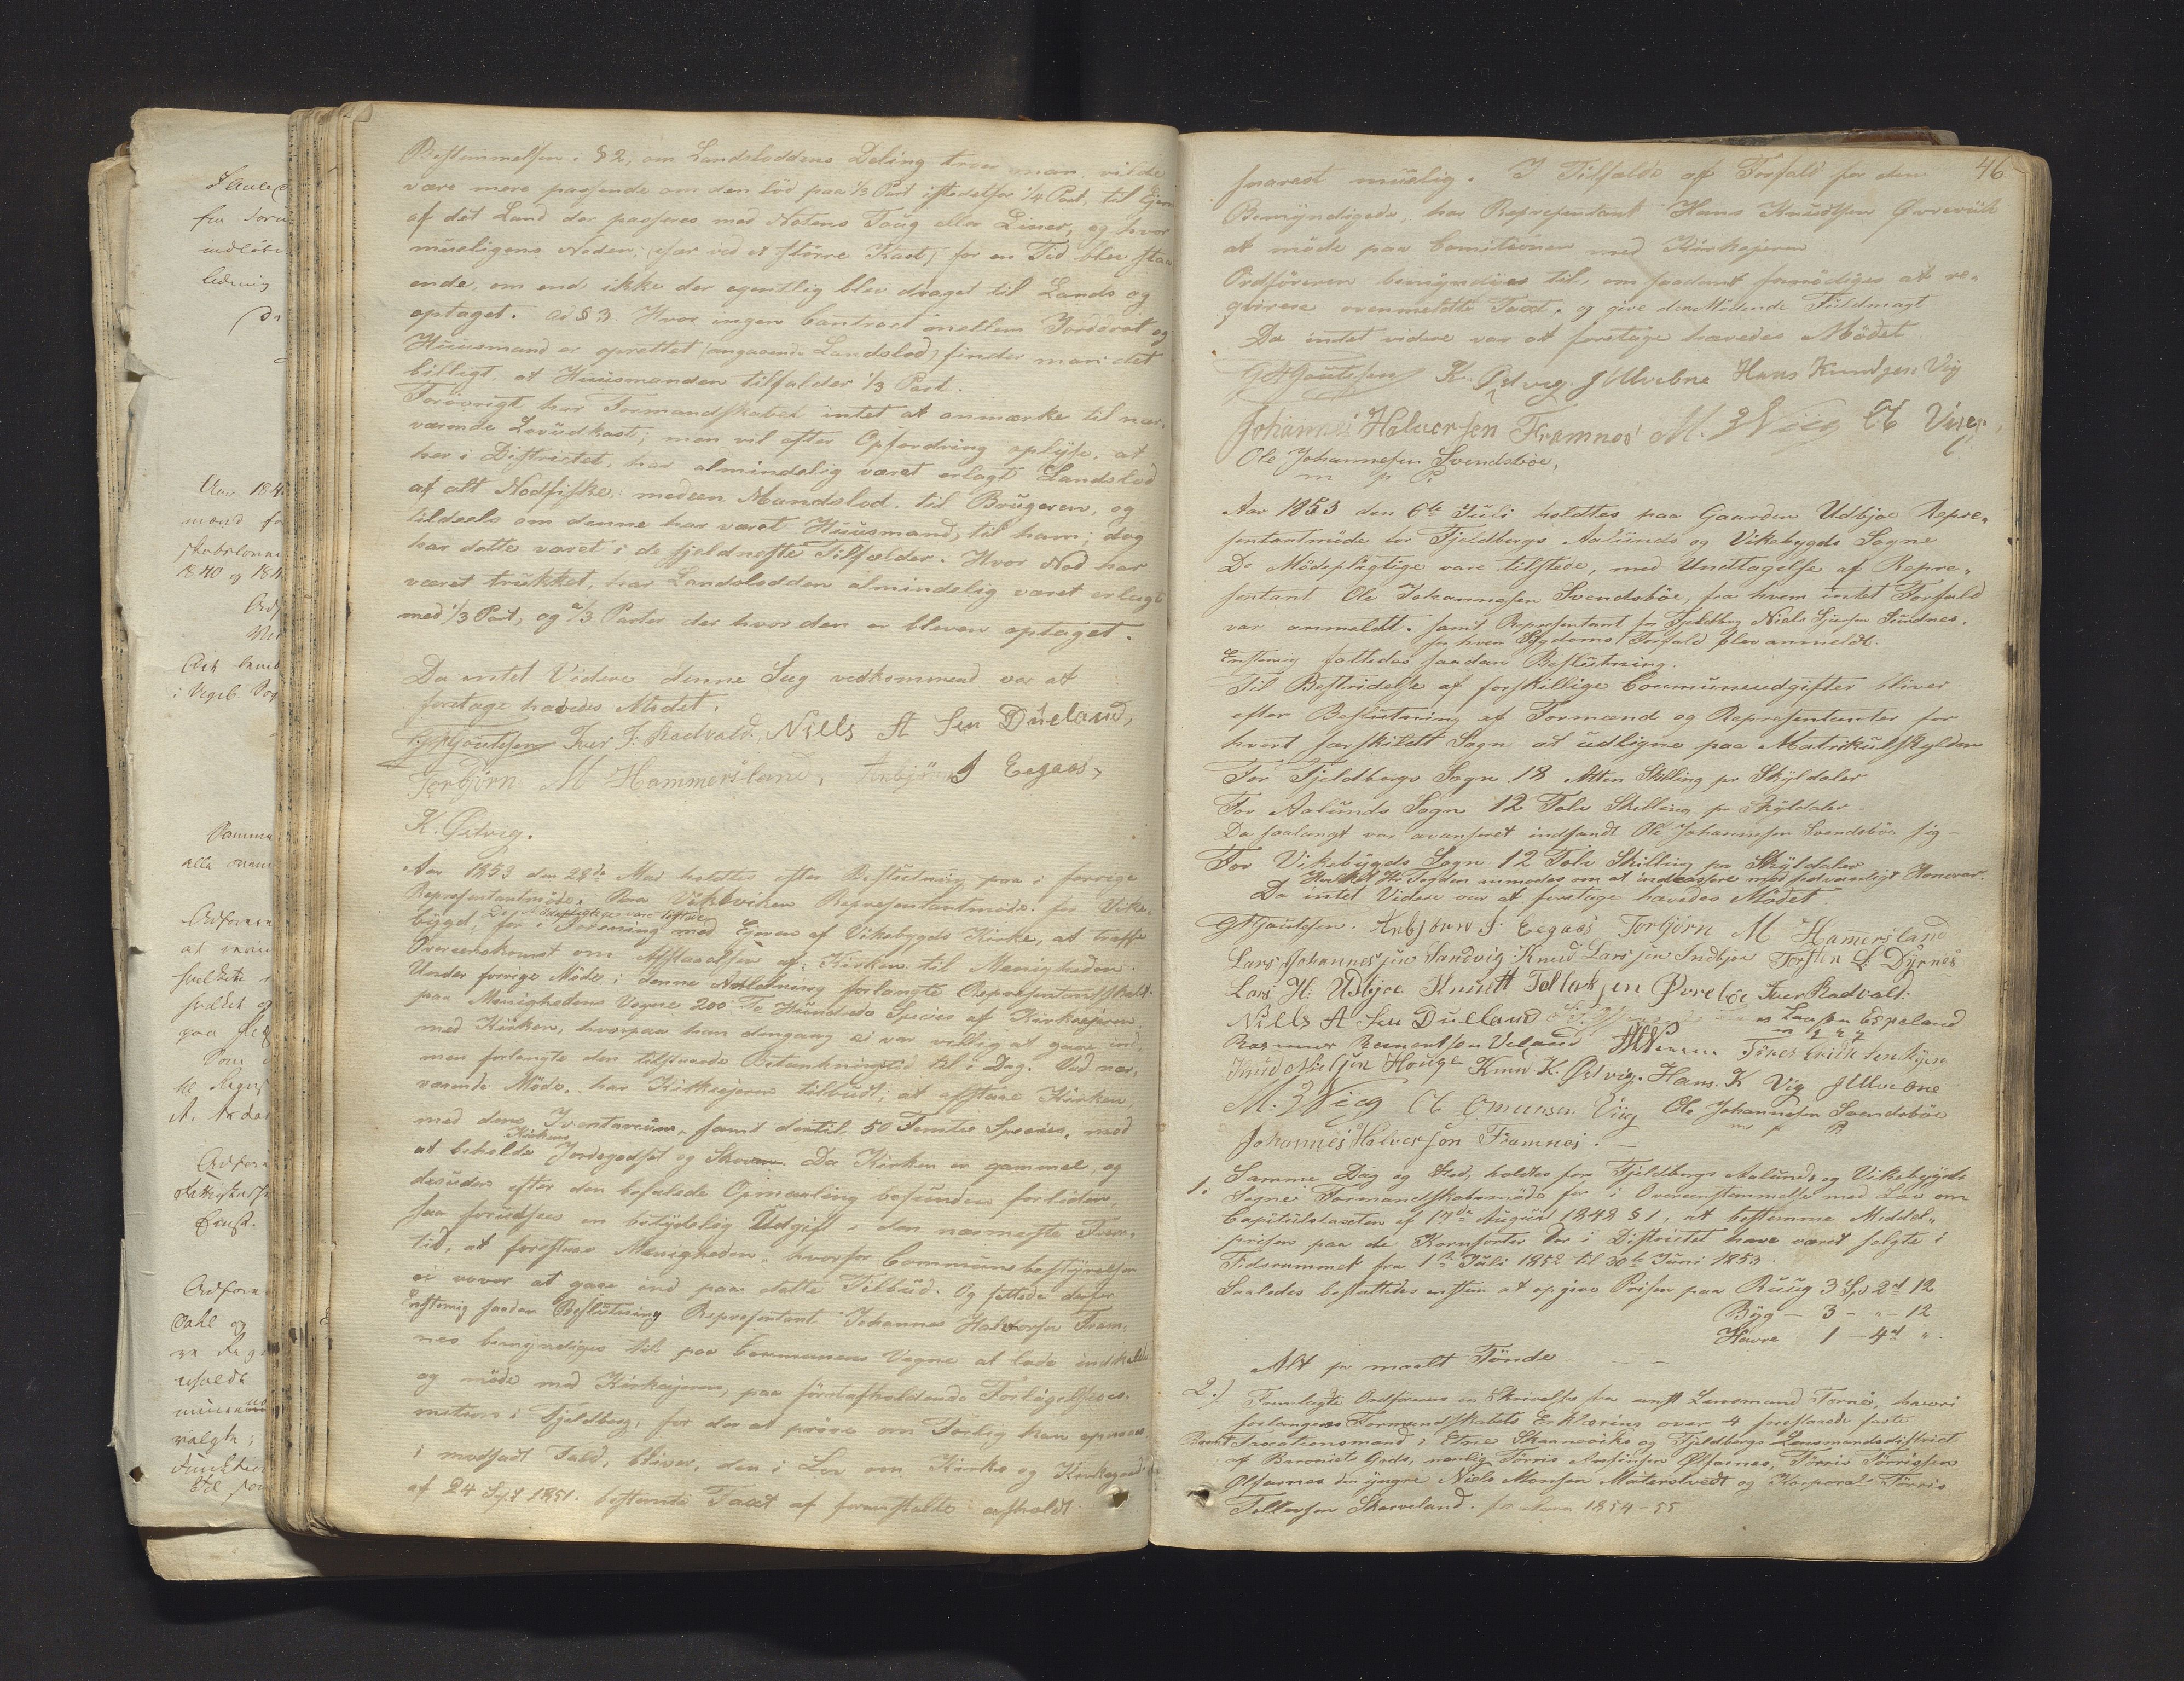 Bestemmelsen. § 2, om Landsloddens Deling troer man vilde
være mere passende om den lød paa 1/3 Part istedetfor 1/4 Part, til Ejeren
af det Land der passeres med Notens Toug eller Liner, og hvor
mueligens Noden, (især ved et større Kast) for en Tid blev staa
ende, om end ikke der egentlig blev draget til Lands og
optaget. ad § 3. Hvor ingen Contract mellem Jorddrot og
Huusmand er oprettet (angaaende Landslod) finder man det
billigt, at Huusmanden tilfalder 1/3 Part.
Forøvrigt har Formandskabet intet at anmærke til nær-
værende Lovudkast; men vil efter Opfordring oplyse, at
her i Districtet, har almindelig været erlagt Landslod
af alt Nodfiske, medens Mandslod til Brugeren, og
tildeels om denne har været Huusmand, til ham; dog
har dette været i de fjeldneste Tilfælder. Hvor Nod har
været trukket, har Landslodden almindelig været erlagt
med 1/3 Part, og 2/3 Parter der hvor den er bleven optaget.
Da intet Videre denne Sag vedkommend var at
foretage hævedes Mødet.
G A Gautesen Iver I. Radvald, Niells A Sen Düeland,
Torbjørn M Hammersland, Anbjörn I Eegaas,
K. Østvig.
Aar 1853 den 28de Mai holdtes efter Beslutning paa i forrige
Repræsentantmøde. Paa Vikevikens Repræsentantmøde for Vike-
bygd, De Mødepligtige vare tilstæde
for i Forening med Ejeren af Vikebygds Kirke, at træffe
Overeenskomst om Afstaaelsen af Kirken til Menigheden.
Under forrige Møde i denne Anledning forlangte Repræsentantskabet
paa Menighedens Vegne 200 To Hundrede Species af Kirkeejeren
med Kirken, hvorpaa han dengang ei var villig at gaae ind,
men forlangte den tilstaaede Betænkningstid til i Dag. Ved nær-
værende Møde har Kirkeejeren tilbudt, at afstaae Kirken
med dens Inventarium, samt dertil 50 Femti Species, mod
at beholde Kirkens Jordegodset og Skoven. Da Kirken er gammel, og
desuden efter den befalede Opmaaling befunden for liden,
saa forudsees en betydelig Udgift i den nærmeste Frem-
tid, at forestaae Menigheden, hvorfor Communebestyrelsen
ei vover at gaae ind paa dette Tilbud. Og fattede derfor
Enstemig saadan Beslutning Repræsentant Johannes Halvorsen Fram-
nes bemyndiges til paa Communens Vegne at lade indkalde
og møde med Kirkeejeren, paa førstafholdende Forligelsesco-
mition i Fjeldberg, for der at prøve om Forlig kan opnaaes
i modsat Fald, bliver, den i Lov om Kirke og Kirkegaarde
af 24 Sept 1851. bestemte Taxt af foranstalte afholdt
46
snarest muelig. I Tilfælde af Forfald for den
Bemyndigede, har Repræsentant Hans Knudtsen Øvrevik
at møde paa Comitionen med Kirkejeren
Ordføreren bemyndiges til, om saadant fornødiges at re-
qvirere ovenmeldte Taxt, og give den Mødende Fuldmagt
Da intet videre var at foretage hævedes Mødet
G A Gautesen K. Østvig. J Ulvebne Hans Knudsen Vig
Johannes Halversen Framnes M. Wiig O Viig
Ole Johannesen Svendsbøe,
m p P.
Aar 1853 den 6te Juli holdtes paa Gaarden Udbjoe Repræ-
sentantmøde for Fjeldbergs Aalunds og Vikebygds Sogne
De Mødepligtige vare tilstede, med Undtagelse af Repræ-
sentant Ole Johannesen Svendsbøe, fra hvem intet Forfald
var anmeldt. samt Repræsentant for Fjeldberg Niels Sjursen Sundnes,
for hvem Sygdoms Forfald blev anmeldt.
Enstemig fattedes saadan Beslutning.
Til Bestridelse af forskillige Communeudgifter bliver
efter Beslutning af Formænd og Repræsentanter for
hvert særskildt Sogn at udligne paa Matrikulskylden
For Fjeldbergs Sogn 18 Atten Skilling pr Skyldaler
For Aalunds Sogn 12 Tolv Skilling pr Skyldaler
Da saalangt var avanseret indfandt Ole Johannesen Svendsbøe sig -
For Vikebygds Sogn 12 Tolv Skilling pr Skyldaler
Hvilket Hr Fogden anmodes om at indcassere mod sedvanligt Honorar.
Da intet Videre var at foretage hævedes Mødet.
G A Gautesen. Anbjørn I. Eegaas Torbjørn M Hamersland
Lars Johannessen Sandvig Knud Larsen Indbjoe Torsten L. Dyrnes
Lars H: Udbjoe Knutt Tollaksen Øvrebøe Iver Radvald.
Niells A Sen Düeland Larsen Espeland
m p P
Rasmus Reinertsen Veland Tørres Ericksen Skjen
Houge Knud K. Østvig. Hans. K Vig J Ulvebne
M. Wiig O Omunsen Viig Ole Johannesen Svendsbøe
m p P
Johannes Halversen Framnes.
1. Samme Dag og Sted, holdtes for Fjeldbergs Aalunds og Vikebygds
Sogne Formandskabsmøde for i Overeenstemmelse med Lov om
Capitulstaxten af 17de August 1848 § 1, at bestemme Middel-
prisen paa de Kornsorter der i Districtet have været solgte i
Tidsrummet fra 1te Juli 1852 til 30te Juni 1853.
Saaledes besluttedes enstem at opgive Prisen paa Ruug 3 Sp 2 # 12
Byg - 3 - " - 12
Havre 1 - 4 # ".
Alt pr maalt Tønde
2.) Fremlagte Ordføreren en Skrivelse fra const Lensmand Tornes, hvori
forlanges Formandskabets Erklæring over 4 foreslaaede faste
Taxationsmænd i Etne Skaanevigs og Fjeldbergs Lensmandsdistrict
af Baroniets Gods, nemlig Tørris Amsinsen Ølfarnes, Tørris Tørrissen
Ølfarnes den yngre Niels Monsen Matrestvedt og Korporal Tørris
Tollevsen Skarveland. for Aaren 1854-55